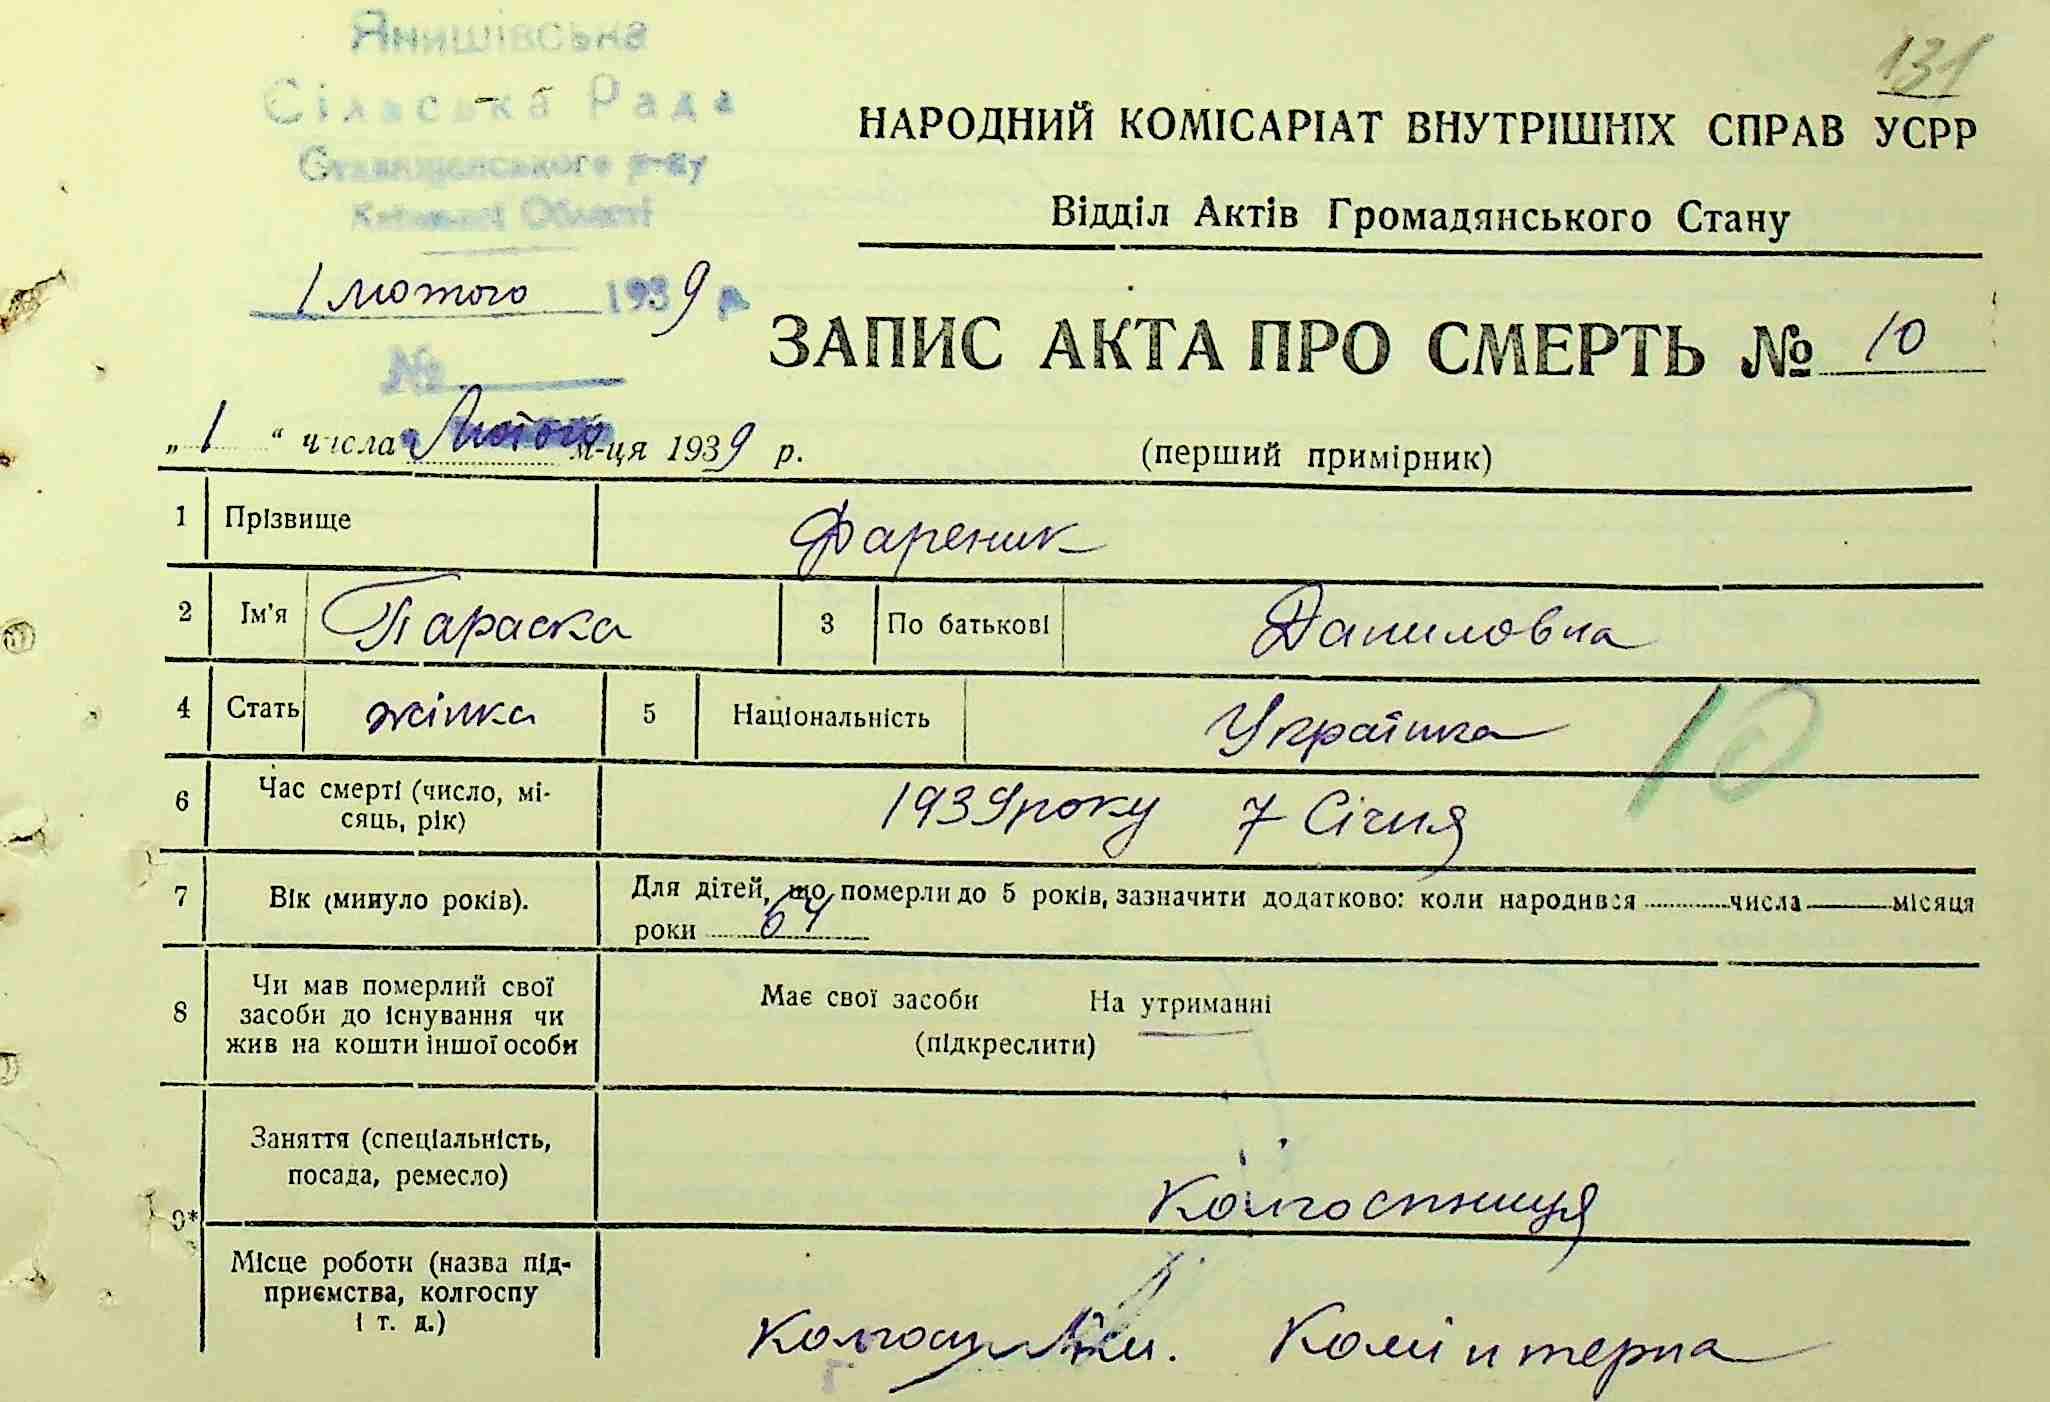 131
Янишівська
Сільська Рада
Ставищенського р-ну
Київської Області
1 лютого 1939 р.
№
НАРОДНИЙ КОМІСАРІАТ ВНУТРІШНІХ СПРАВ УСРР
Відділ Актів Громадянського Стану
ЗАПИС АКТА ПРО СМЕРТЬ № 10
„1“ числа Лютого м-ця 1939 р.
(перший примірник)
1 Прізвище Фареник
2 Ім'я Параска 3 По батькові Даниловна
4 Стать жінка 5 Національність Українка
10
6 Час смерті (число, мі-
сяць, рік)
1939 року 7 Січня
7 Вік (минуло років).
Для дітей, що померли до 5 років, зазначити додатково: коли народився числа місяця
роки 64
8 Чи мав померлий свої
засоби до існування чи
жив на кошти іншої особи
Має свої засоби На утриманні
(підкреслити)
9*
Заняття (спеціальність,
посада, ремесло)
Колгоспниця
Місце роботи (назва під-
приємства, колгоспу
і т. д.)
Колгосп Комінтерна